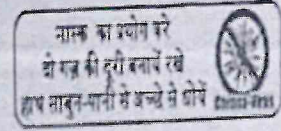 मास्क का प्रयोग करें
दो गज की दूरी बनायें रखें
हाथ साबुन-पानी से अच्छे से धोयें